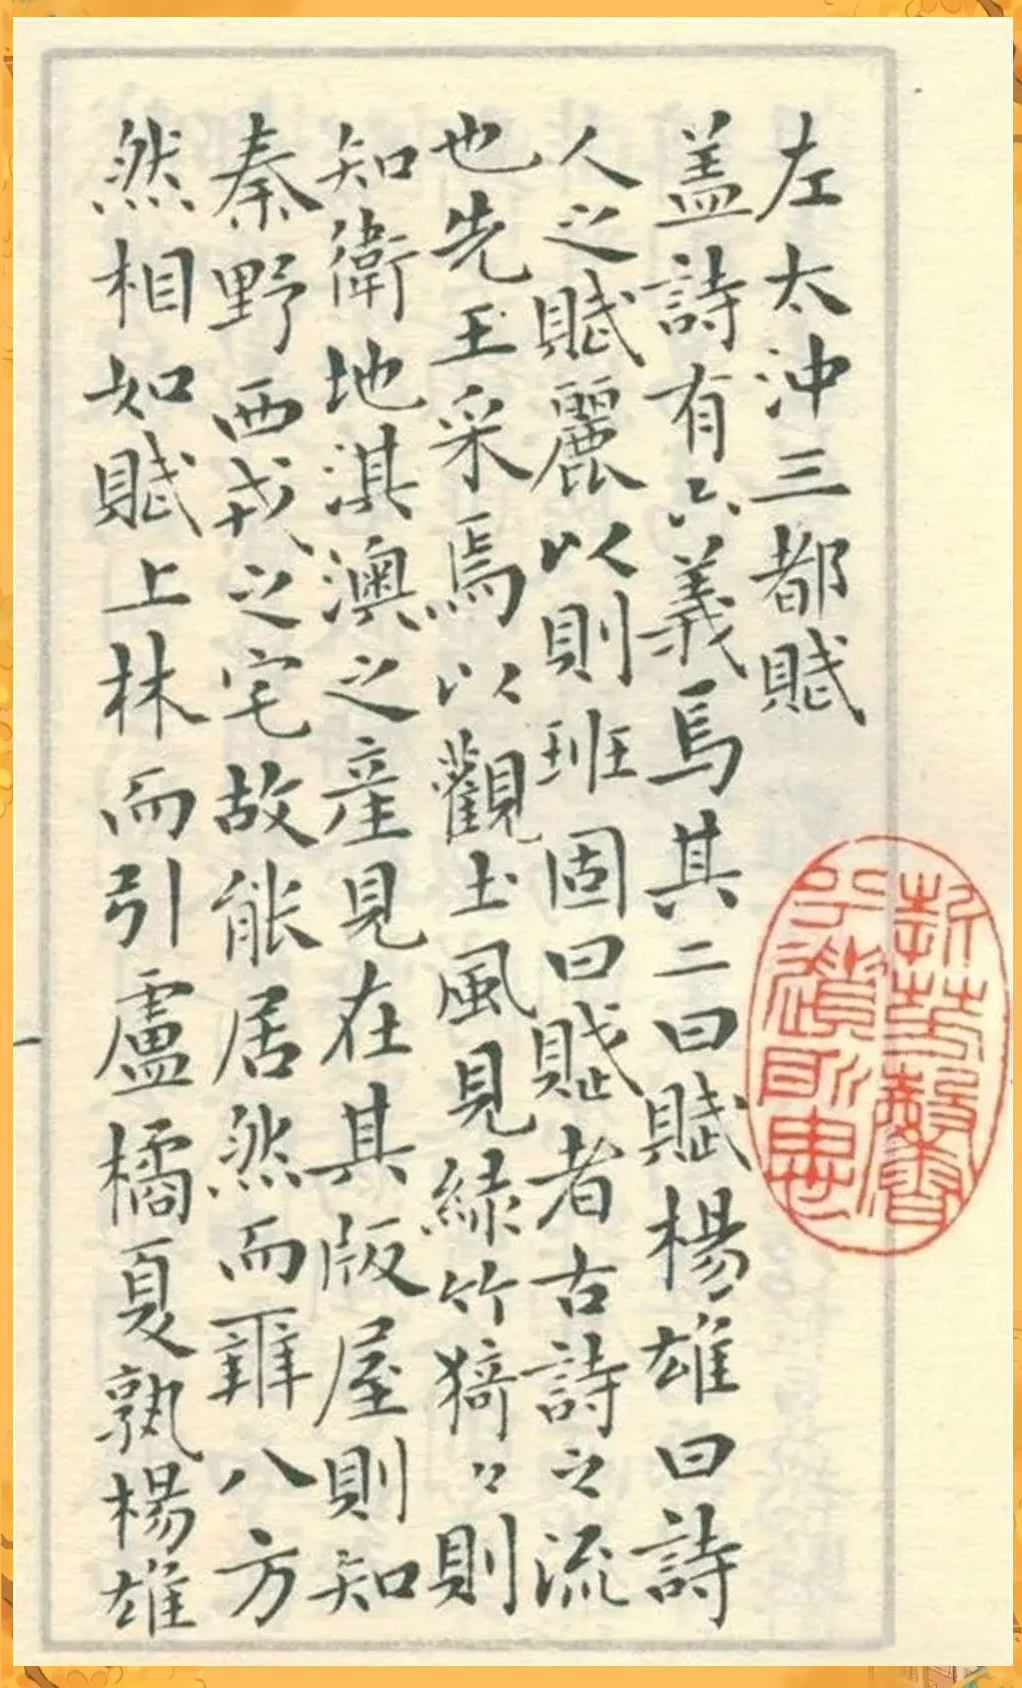 左太沖三都賦
盖詩有六義焉其二曰賦楊雄曰詩
人之賦麗以則班固曰賦者古詩之流
也先王采焉以觀土風見緑竹猗〻則
知衛地淇澳之産見在其版屋則知
秦野西戎之宅故能居然而辨八方
然相如賦上林而引盧橘夏孰楊雄
折芳馨
兮遺所思